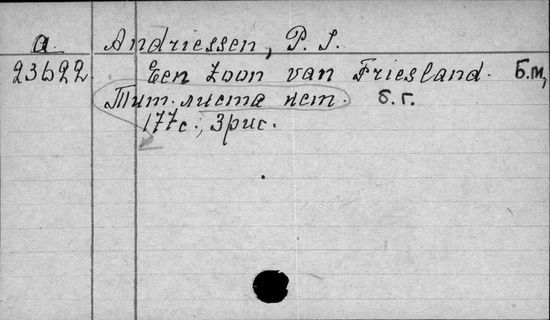 a. Andriessen, P. S.
23622 Een Zoon van Friesland. Б.м,
Тит. листа нет. б. г.
177с., 3рис.